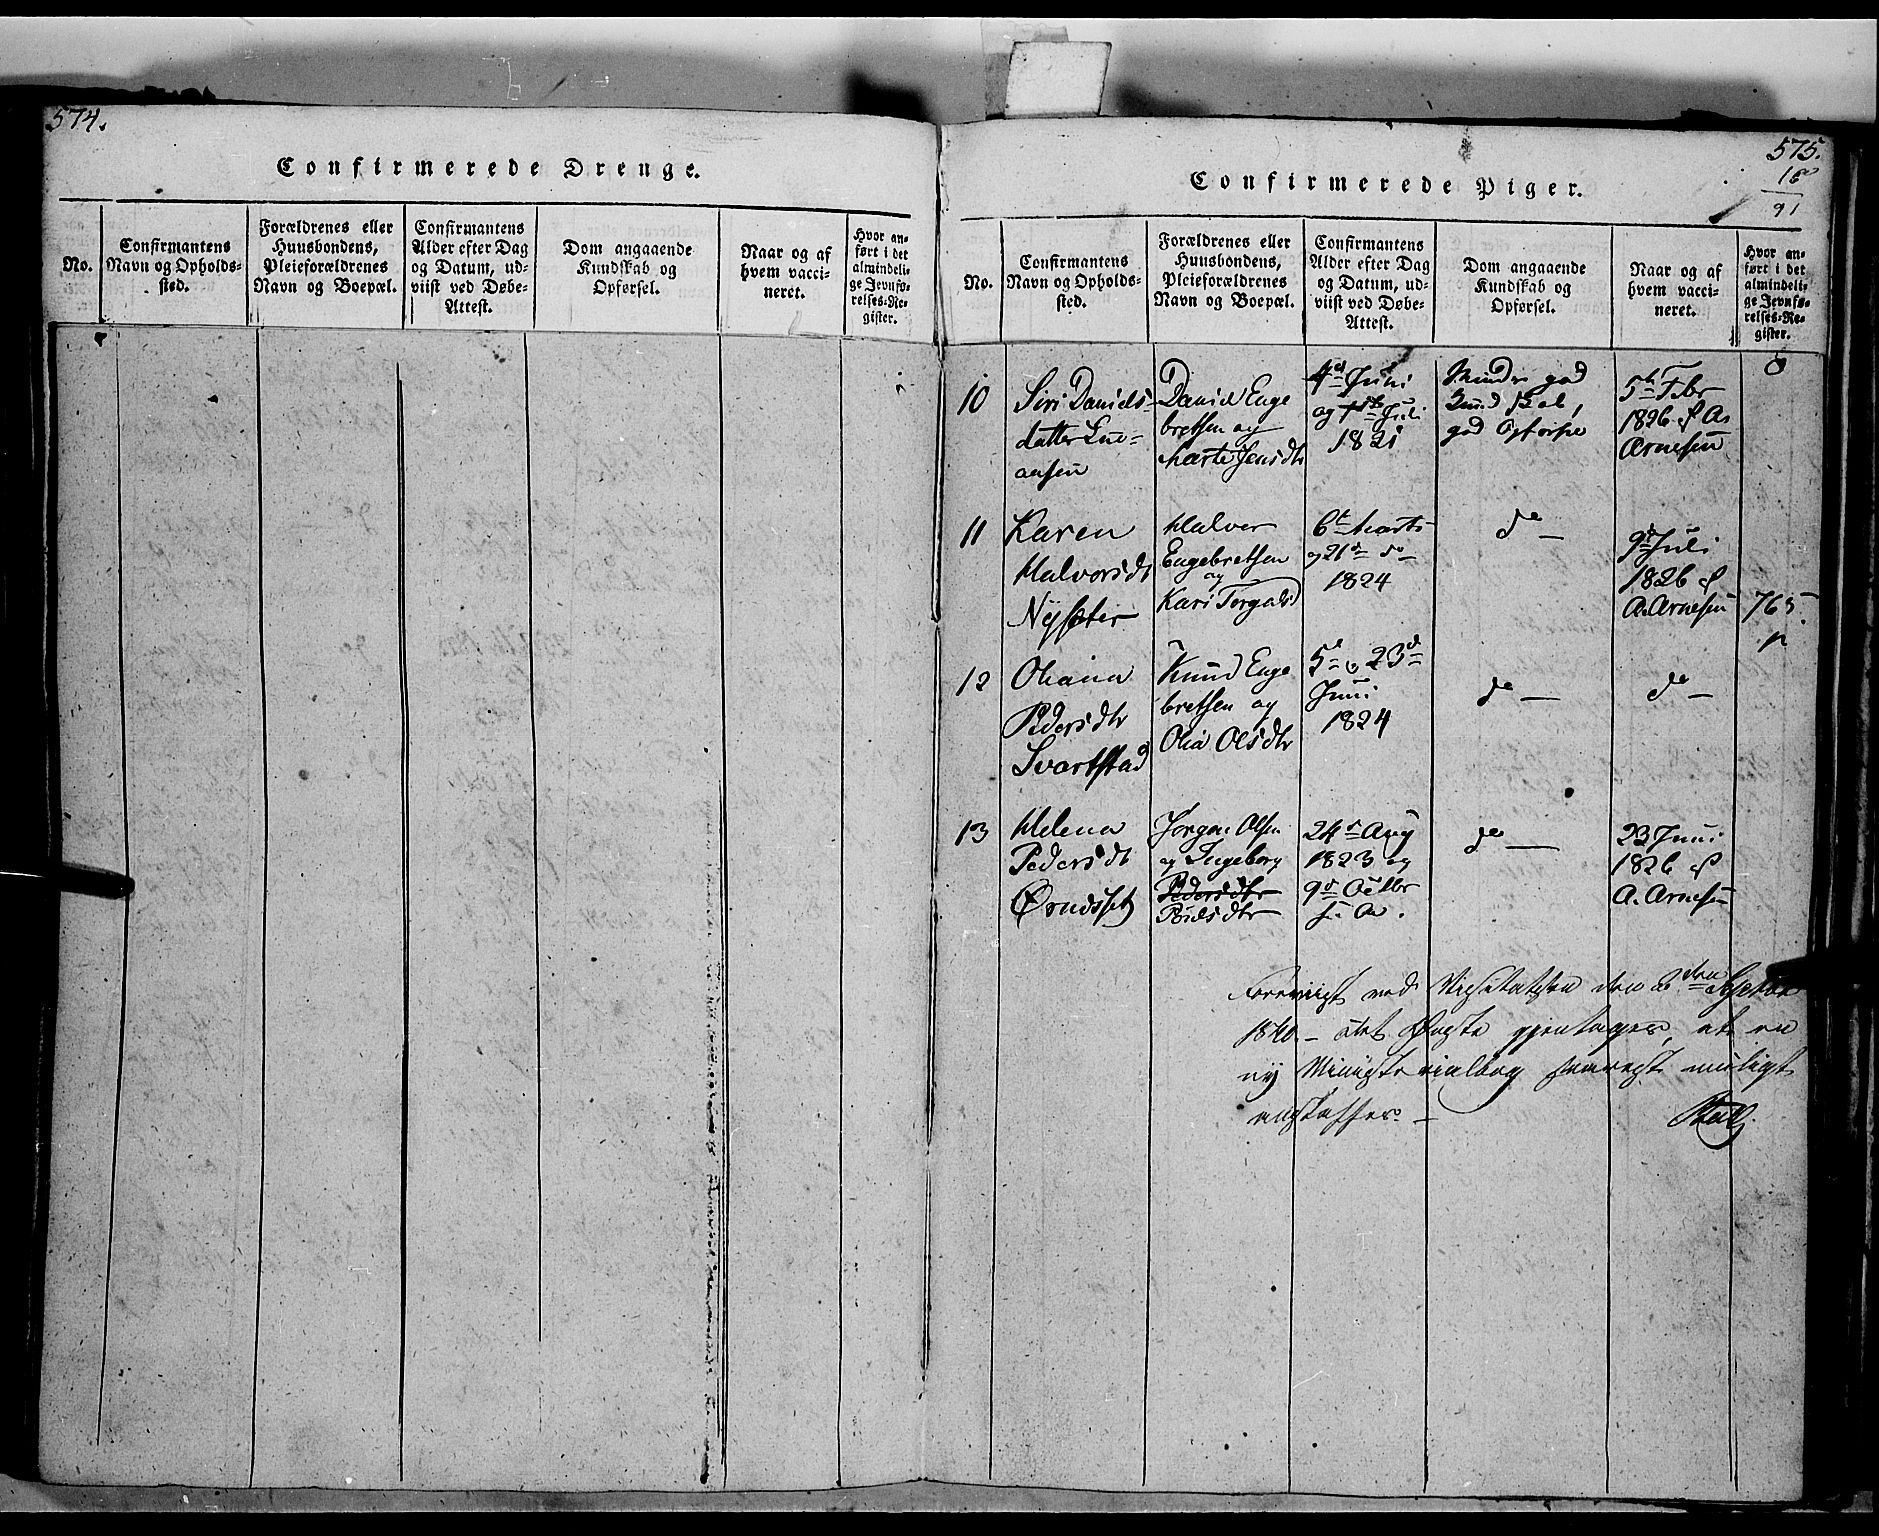 574.
Confirmerede Drenge.
No.
Confirmantens
Navn og Opholds-
sted.
Forældrenes eller
Huusbondens,
Pleieforældrenes
Navn og Boepæl.
Confirmantens
Alder efter Dag
og Datum, ud-
viist ved Døbe-
Attest.
Dom angaaende
Kundskab og
Opførsel.
Naar og af
hvem vacci-
neret.
Hvor an-
ført i det
almindeli-
ge Jevnfø-
relses-Re-
gister.
575.
16
91
Confirmerede Piger.
No.
Confirmantens
Navn og Opholds-
sted.
Forældrenes eller
Huusbondens,
Pleieforældrenes
Navn og Boepæl.
Confirmantens
Alder efter Dag
og Datum, ud-
viist ved Døbe-
Attest.
Dom angaaende
Kundskab og
Opførsel.
Naar og af
hvem vacci-
neret.
Hvor an-
ført i det
almindeli-
ge Jevnfø-
relses-Re-
gister.
10
Siri Daniels-
datter
aasen
Daniel Enge
bretsen og
Marte Jensdtr
4de Juni
og Juli
1821
Mindre god
Kundskab,
god Opførsel
5te Febr
1826 af A.
Arnesen
11
Karen
Halvorsdt
Nysæter
Halvor
Engebretsen
og
Kari Torgalsd
6te Marts
og 21de do
1824
do —
9de Juli
1826 af
A. Arnesen
765.
12
Oliana
Pedersdtr
Svartstad
Knud Enge
bretsen og
Olia Olsdtr
5te og 23de
Juni
1824
do —
do —
13
Helena
Pedersdt
Ørudsset
Jørgen Olsen
og Ingeborg
Pedersdtr
Poulsdtr
24de Aug
1823 og
9de Octbr
s. A.
do —
23 Juni
1826 af
A. Arnesen
Foreviist ved Visitatsen den Septbr
1840. – det Ønske gjentages, at en
ny Ministerialbog snarest muligt
anskaffes. –